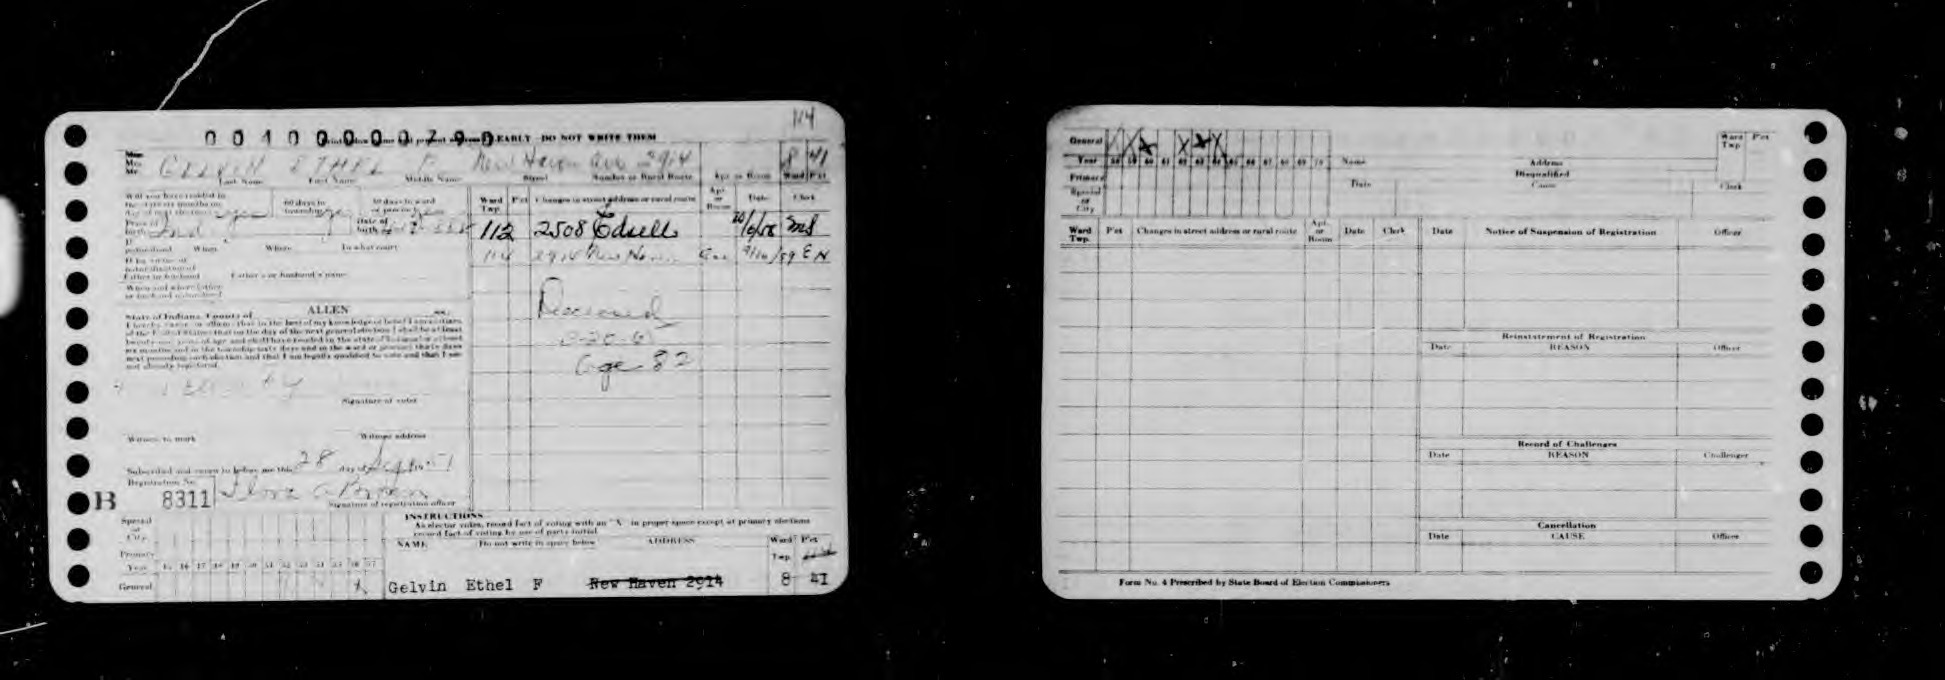 114
0 0 4 0 0 0 0 0 7 9 0 EARLY - DO NOT WRITE THEM
Mrs. GELVIN ETHEL F New Haven Ave 2914 8 41
Last Name First Name Middle Name Street Number or Rural Route Apt or Room Ward P'ct
Will you have resided in
the state six months on
day of next election yes
60 days in
township yes
30 days in ward
or precinct
Place of
birth Ind
Date of
birth
If
naturalized When Where In what court
If by virtue of
naturalization of
Father or husband Father's or husband's name
When and where father
or husband naturalized
Ward
Twp. P'ct Changes in street address or rural route Apt.
or
Room Date Clerk
112 2508 Edsell
114 2914 New Haven 59 E N
Deceased
Age 82
State of Indiana, County of ALLEN ss:
I hereby swear or affirm that to the best of my knowledge or belief I am a citizen
of the United States that on the day of the next general election I shall be at least
twenty-one years of age and shall have resided in the state of Indiana for at least
six months and in the township sixty days and in the ward or precinct thirty days
next preceding such election and that I am legally qualified to vote and that I am
not already registered.
Signature of voter
Witness to mark Witness address
Subscribed and sworn to before me this 28 day of Sept
Registration No.
B 8311
Signature of registration officer
INSTRUCTIONS
As elector votes, record fact of voting with an "X" in proper space except at primary elections
record fact of voting by use of party initial
Special
or
City
Primary
Year 45 46 47 48 49 50 51 52 53 54 55 56 57
General X
NAME Do not write in space below ADDRESS Ward P'ct
Twp.
Gelvin Ethel F New Haven 2914 8 41
General X X X X X X
Year 58 59 60 61 62 63 64 65 66 67 68 69 70
Primary
Special
or
City
Name Address
Ward
Twp P'ct
Disqualified
Date Cause Clerk
Ward
Twp. P'ct Changes in street address or rural route Apt.
or
Room Date Clerk
Date Notice of Suspension of Registration Officer
Reinstatement of Registration
Date REASON Officer
Record of Challenges
Date REASON Challenger
Cancellation
Date CAUSE Officer
Form No. 4 Prescribed by State Board of Election Commissioners